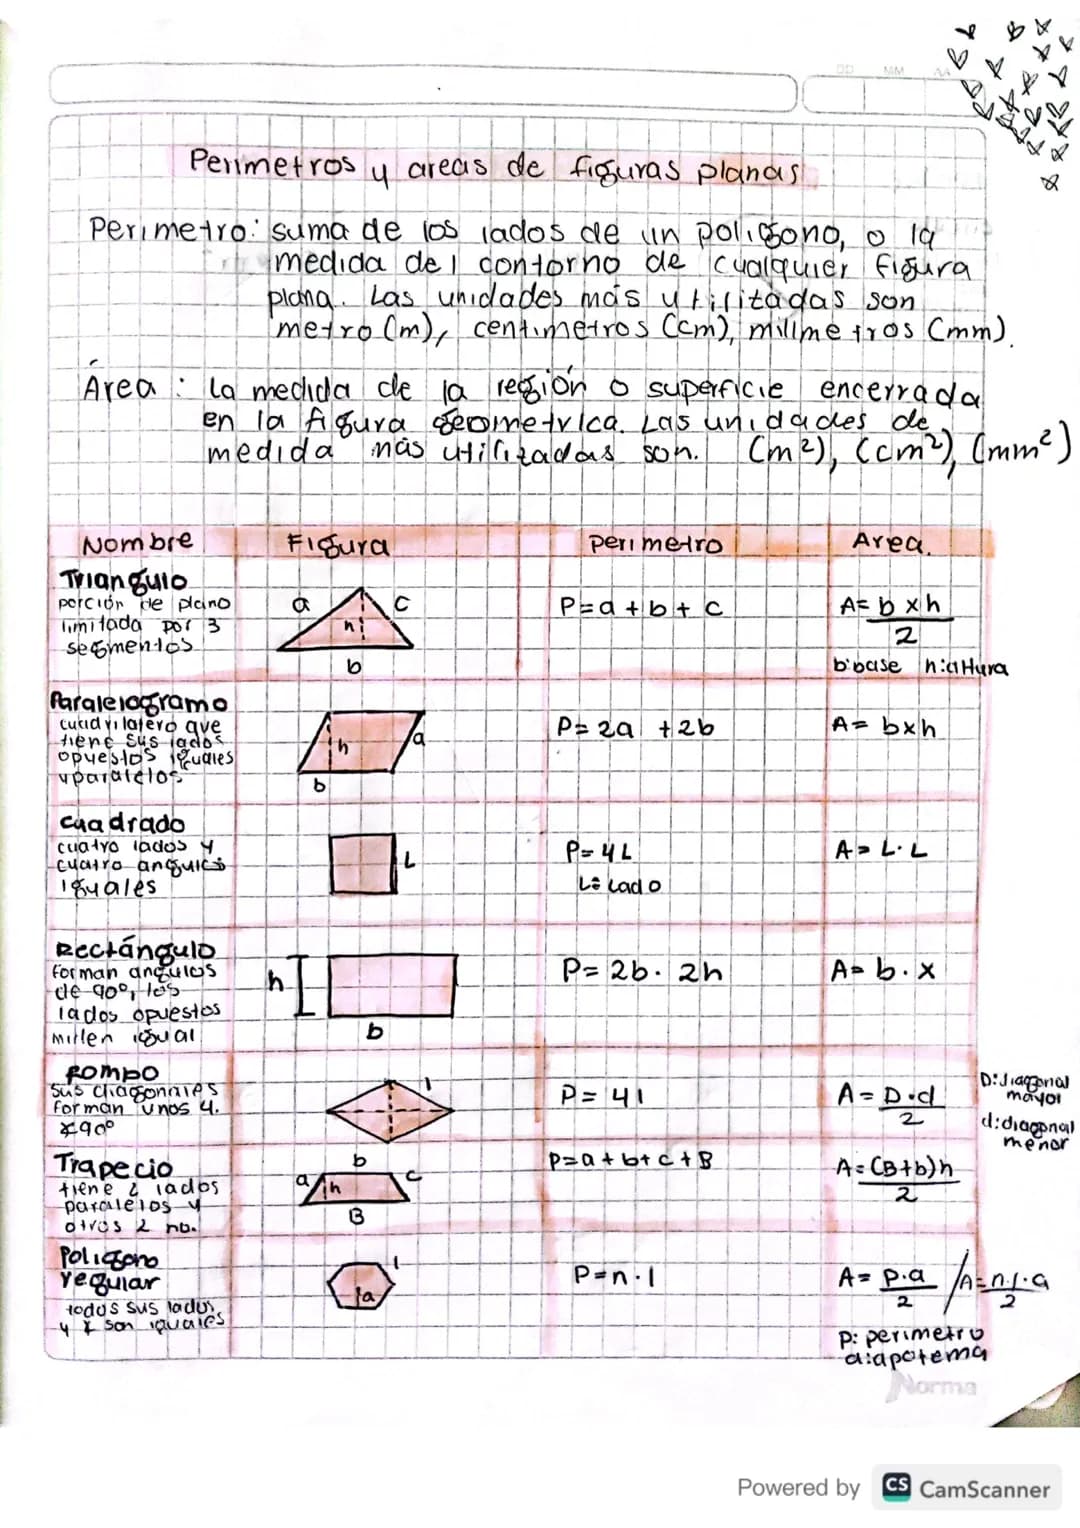 DD MM AA
Perimetros y areas de figuras planas
Perimetro: suma de los lados de un poligono, o la
medida del contorno de cualquier figura
plana. Las unidades más utilitadas son
metro (m), centimetros (cm), milimetros (mm).
Área : la medida de la región o superficie encerrada
en la figura geometrica. Las unidades de
medida más utilizadas son. (m²), (cm²), (mm²)
Nombre Figura Perimetro Area.
Triangulo
porción de plano
limitada por 3
segmentos
a c
h
b
P=a+b+c
A= b x h
2
b:base h:altura
Paralelogramo
cuadrilatero que
tiene sus lados
opuestos iguales
y paralelos
h a
b
P= 2a +2b
A= bxh
Cuadrado
cuatro lados y
cuatro angulos
iguales
L
P=4L
L= Lado
A= L·L
Rectángulo
forman angulos
de 90°, los
lados opuestos
miden igual
h
b
P= 2b. 2h
A= b.x
Rombo
sus diagonales
forman unos 4.
∡90°
l
P= 4l
A= D·d
2
D:diagonal
mayor
d:diagonal
menor
Trapecio
tiene 2 lados
paralelos y
otros 2 no.
b
a h c
B
P=a+b+c+B
A=(B+b)h
2
Poligono
regular
todos sus lados
y ∡ son iguales
l
a
P=n·l
A= p.a / A=n.l.a
2 2
p: perimetro
a:apotema
Norma
Powered by CS CamScanner